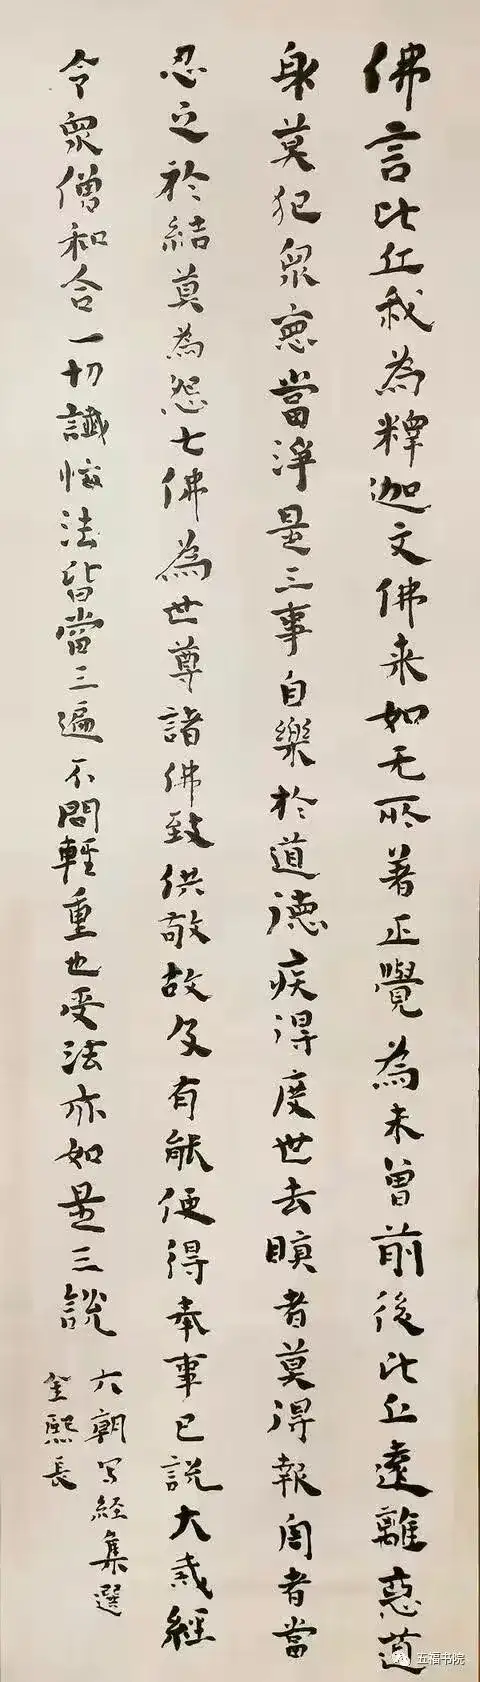 佛言比丘我為釋迦文佛来如无所著正覺為未曾前後比丘遠離惡道
身莫犯眾惡當淨是三事自樂於道德疾得度世去瞋者莫得報罵者當
忍之於結莫為怨七佛為世尊諸佛致供敬故及有能便得奉事已說大戒經
令眾僧和合一切讖悔法皆當三遍不問輕重也受法亦如是三說
六朝写经集選
金熙長
五福书院